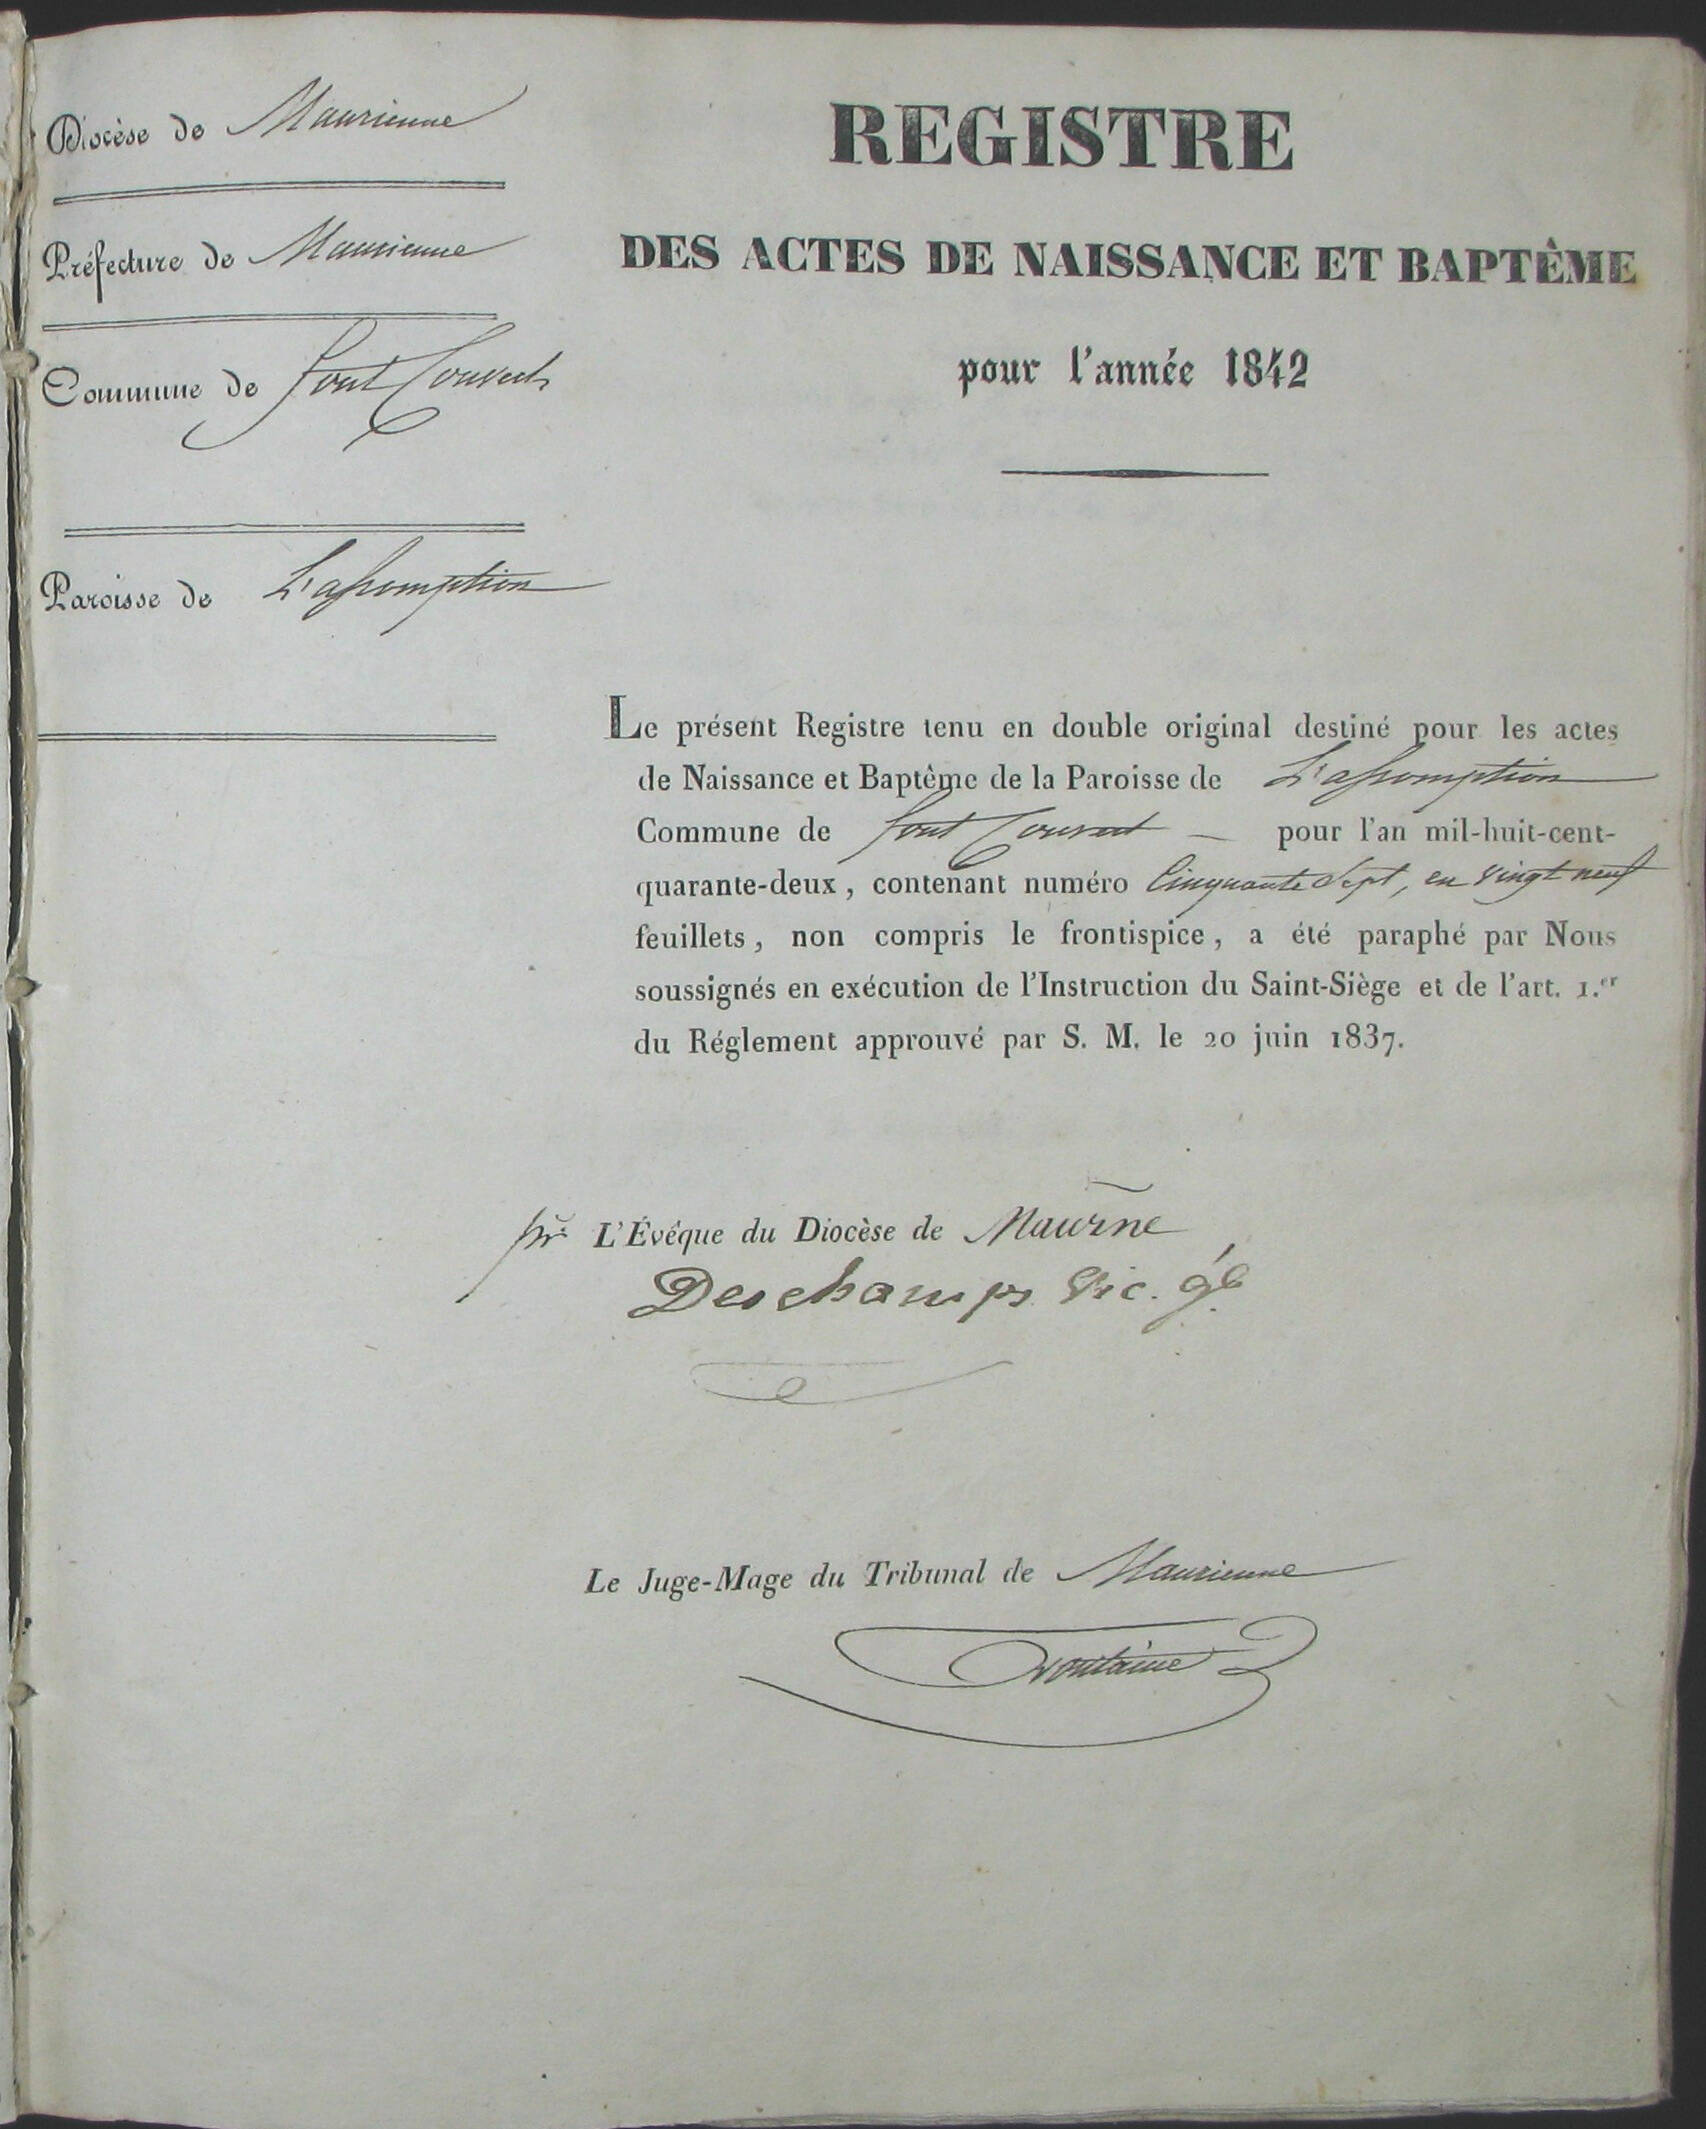 Diocèse de Maurienne
Préfecture de Maurienne
Commune de font Couverte
Paroisse de L'assomption
REGISTRE
DES ACTES DE NAISSANCE ET BAPTÊME
pour l'année 1842
Le présent Registre tenu en double original destiné pour les actes
de Naissance et Baptême de la Paroisse de L'assomption
Commune de font Couvert — pour l'an mil-huit-cent-
quarante-deux, contenant numéro Cinquante Sept, en vingt neuf
feuillets, non compris le frontispice, a été paraphé par Nous
soussignés en exécution de l'Instruction du Saint-Siège et de l'art. 1.er
du Réglement approuvé par S. M. le 20 juin 1837.
pr. L'Évêque du Diocèse de Maurne
Deschamps Vic. gl.
Le Juge-Mage du Tribunal de Maurienne